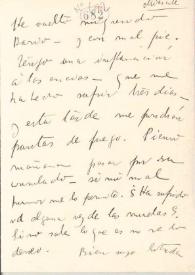 He vuelto
Barco — y con mal pie.
Tengo una inflamación
a las encías — que me
ha hecho sufrir tres días
y esta tarde me pondrán
puntas de fuego. Pienso
mañana pasar por su
— si mi mal
humor me lo permite. ¿Ha sufrido
vd alguna vez de las muelas?
Si no sabe lo que es no se lo
deseo.
Bien suyo